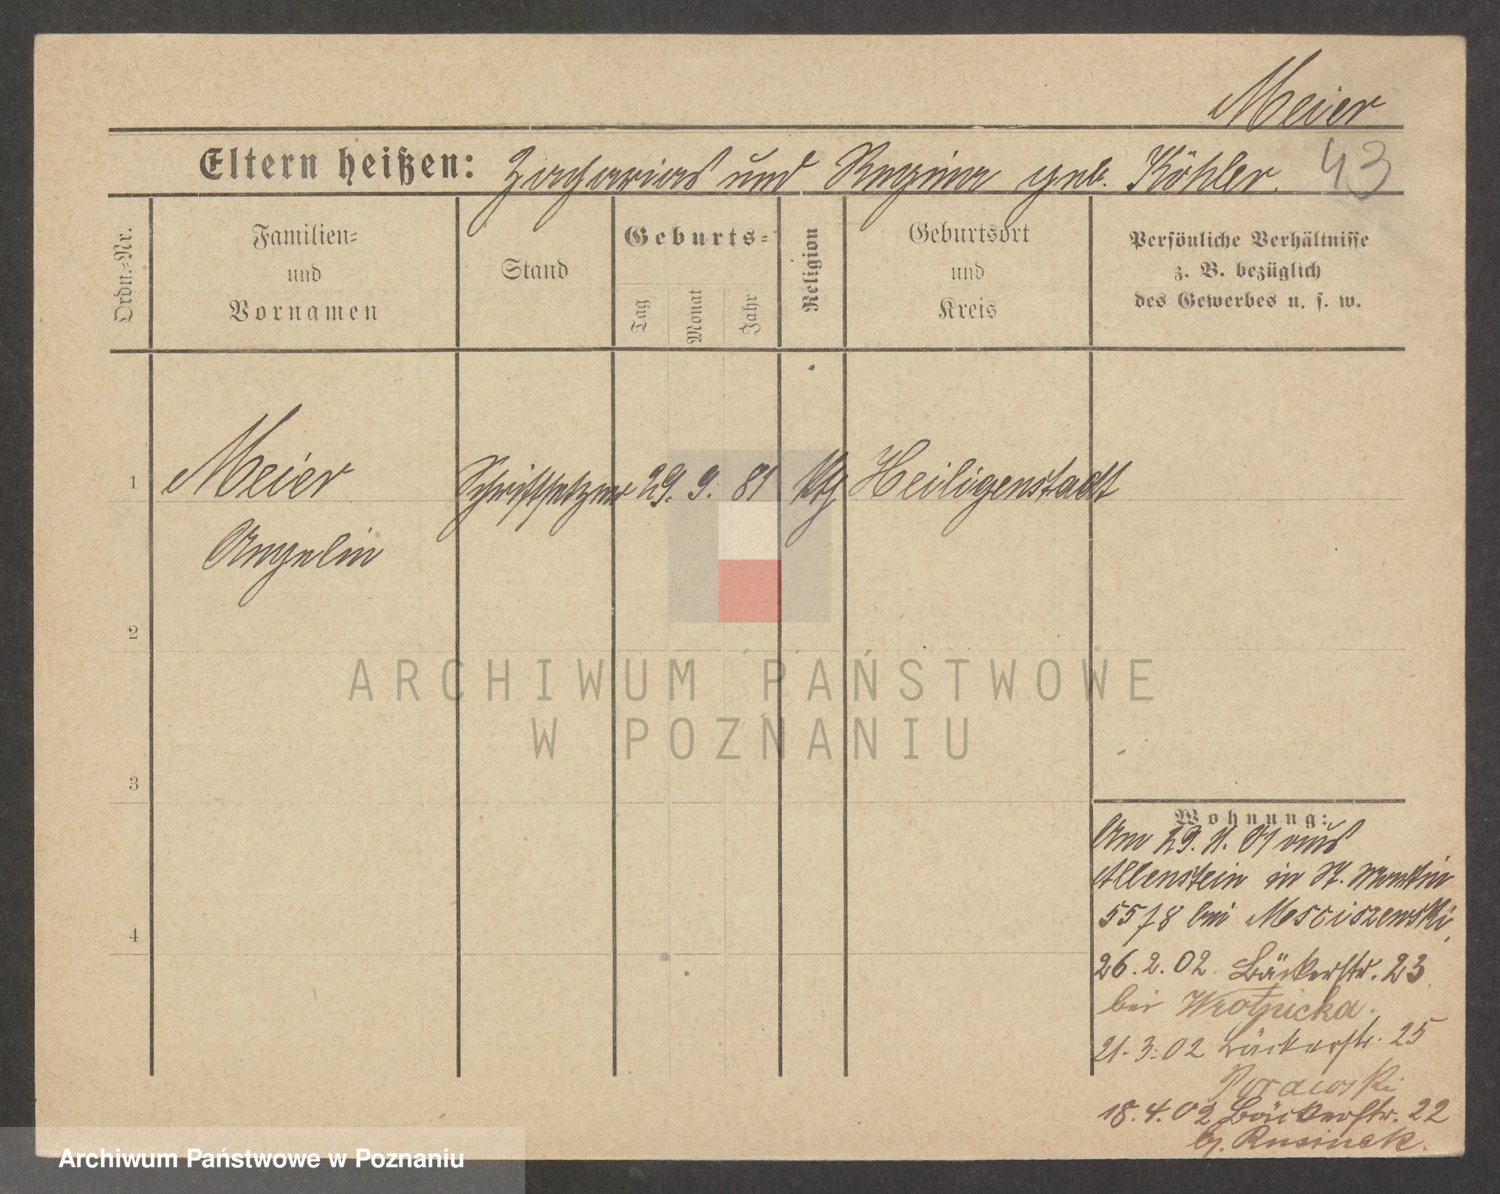 Meier
Eltern heißen: Zacharias und Regina geb. Köhler.
43
Ordn.-Nr.
Familien-
und
Vornamen
Stand
Geburts-
Tag
Monat
Jahr
Religion
Geburtsort
und
Kreis
Persönliche Verhältnisse
z. B. bezüglich
des Gewerbes u. s. w.
1
Meier
Schriftsetzer
29. 9. 81
Ktg
Heiligenstadt
Angelin
2
ARCHIWUM PAŃSTWOWE
W POZNANIU
3
4
Wohnung:
Am 29. 11. 01 aus
Allenstein in St. Martin
55/8 bei Mosciszewski,
26. 2. 02. Bäckerstr. 23
bei Wrotnicka.
21. 3. 02 Bäckerstr. 25
18. 4. 02 Bäckerstr. 22
b. Rusinek.
Archiwum Państwowe w Poznaniu